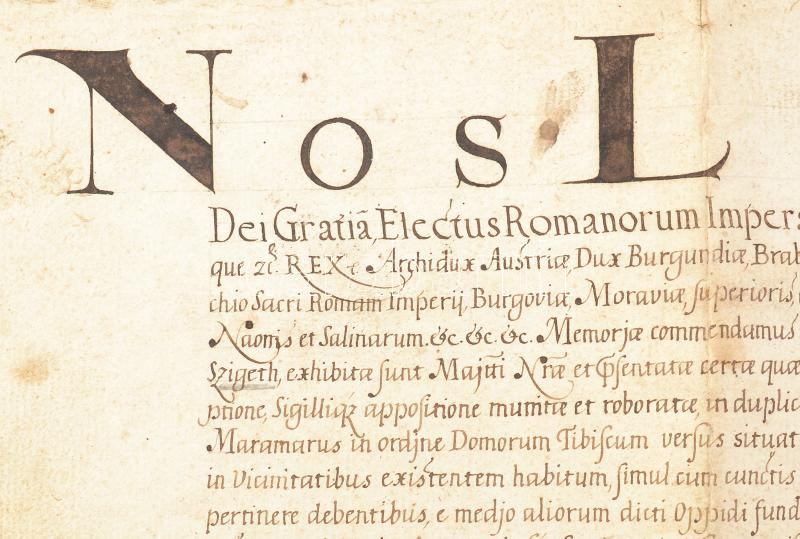 Nos L
Dei Gratiã, Electus Romanorum Impera
que zc̃. REX Archidux Austriæ, Dux Burgundiæ, Brab
chio Sacri Romani Imperij, Burgoviæ, Moraviæ, superioris,
Naonis et Salinarum. &c. &c. &c. Memoriæ commendamus
Szigeth, exhibitæ sunt Majtti Nræ et p̃sentatæ certæ quæ
ptione, Sigilliqz appositione munitæ et roboratæ, in duplic
Maramarus in ordine Domorum Tibiscum versus situat
in Vicinitatibus existentem habitum, simul cum cunctis
pertinere debentibus, è medjo aliorum dicti Oppidi fund